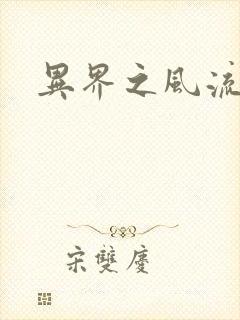 異界之風流
宋雙慶